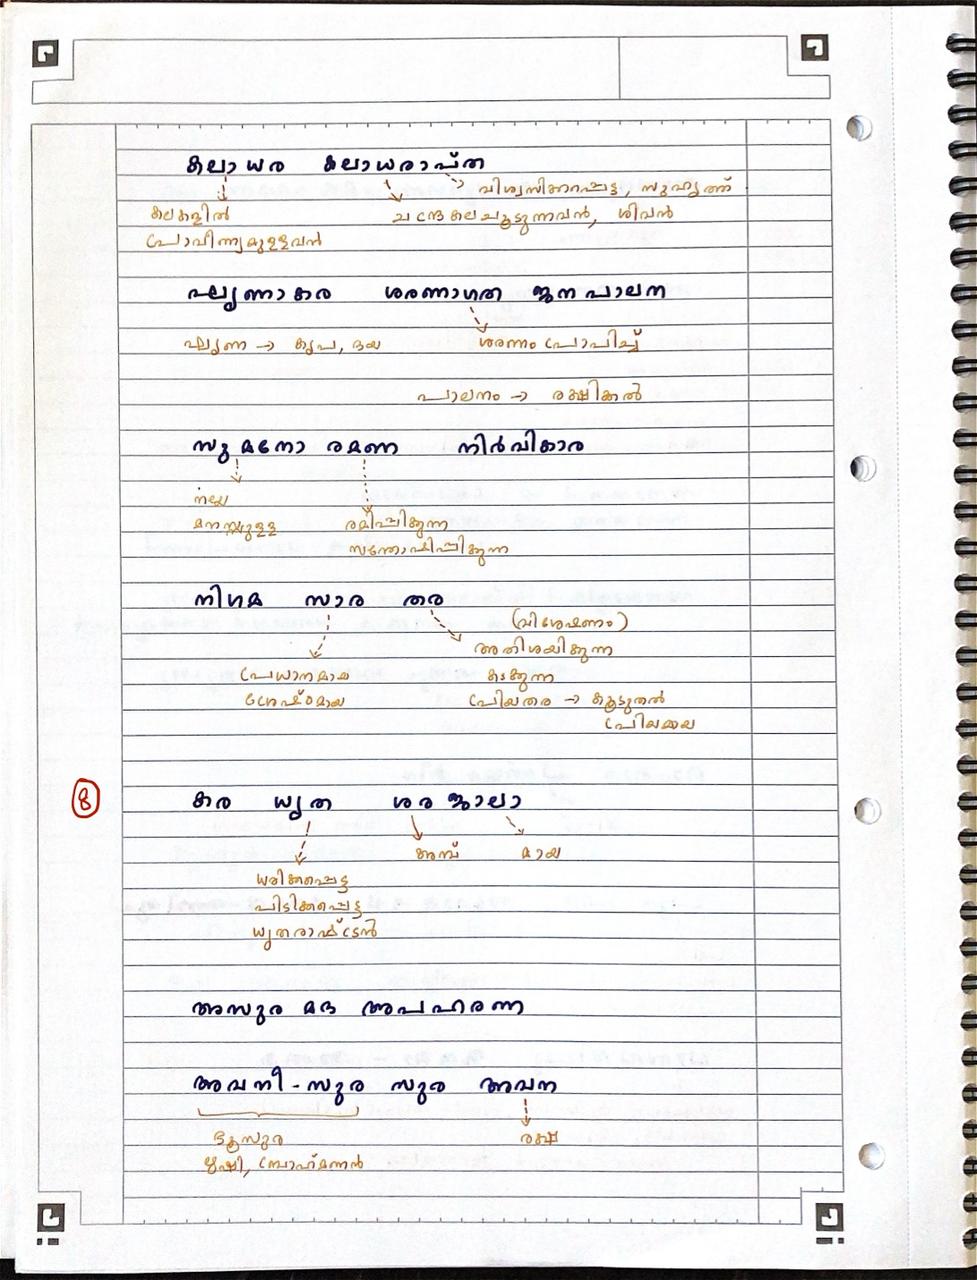 കലാധര കലാധരാപ്ത
വിശ്വസിക്കപ്പെട്ട, സുഹൃത്ത്
കലകളിൽ ചന്ദ്രകല ചൂടുന്നവൻ, ശിവൻ
പ്രാവീണ്യമുള്ളവൻ
ഘൃണാകര ശരണാഗത ജനപാലന
ഘൃണ → കൃപ, ദയ ശരണം പ്രാപിച്ച്
പാലനം → രക്ഷിക്കൽ
സുമനോ രമണ നിർവികാര
നല്ല
മനസ്സുള്ള രമിപ്പിക്കുന്ന
സന്തോഷിപ്പിക്കുന്ന
നിഗമ സാര തര
(വിശേഷണം)
അതിശയിക്കുന്ന
പ്രധാനമായ കടക്കുന്ന
ശ്രേഷ്ഠമായ പ്രിയതര → കൂടുതൽ
പ്രിയമായ
8 കര ധൃത ശര ജാലാ
അമ്പ് മായ
ധരിക്കപ്പെട്ട
പിടിക്കപ്പെട്ട
ധൃതരാഷ്ട്രൻ
അസുര മദ അപഹരണ
അവനീ - സുര സുര അവന
ഭൂസുര രക്ഷ
ഋഷി, ബ്രാഹ്മണൻ